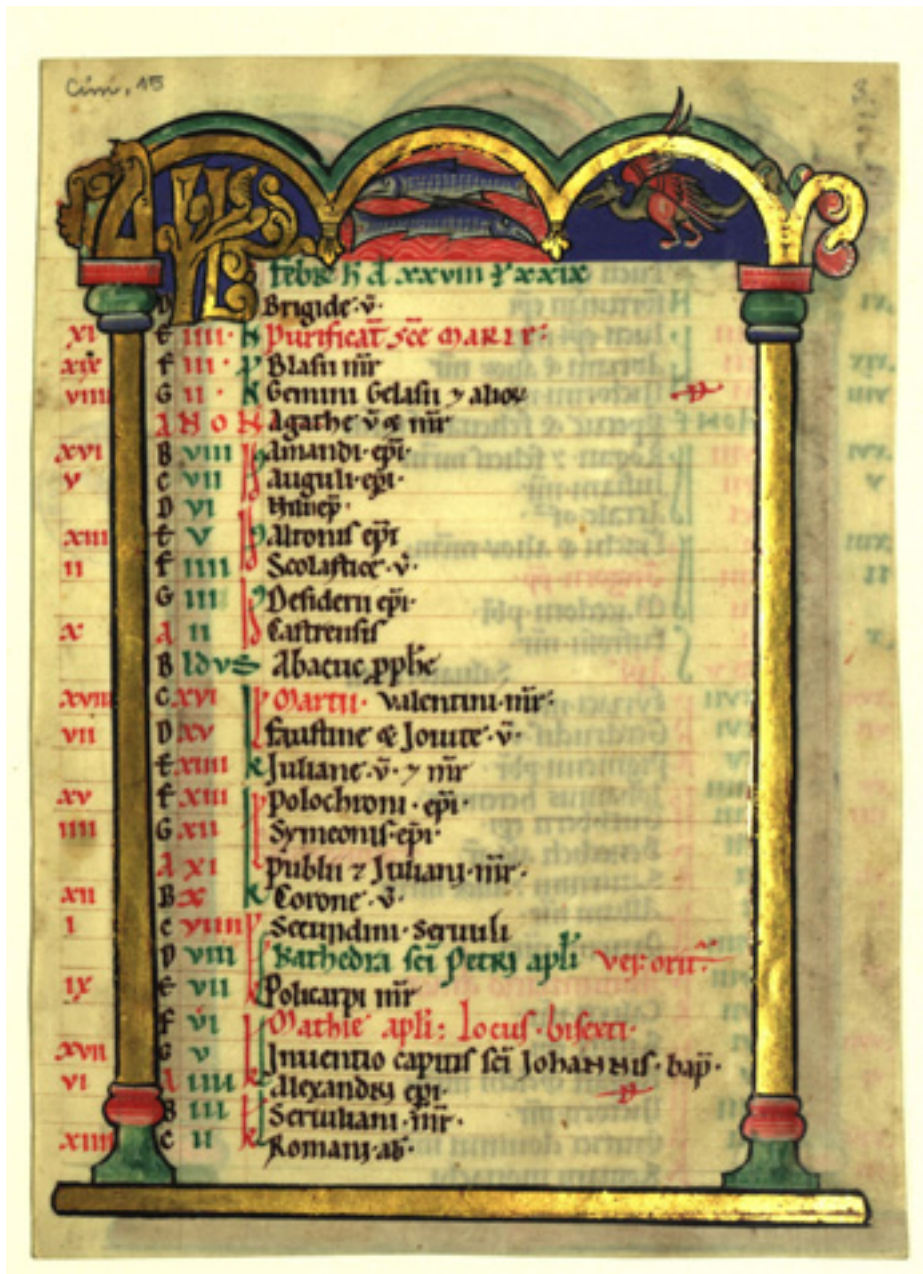 Cim. 15
KL
Febr h d xxviii
D Brigide v̄
xi E iiii N Purificat̄ sc̄e MARIE
xix F iii Blasii mr̄
viii G ii N Gemini Gelasii ⁊ alior
A N O N Agathe v̄ & mr̄
xvi B viii Amandi ep̄i
v C vii Auguli ep̄i
D vi
xiii E v Altonis ep̄i
ii F iiii Scolastice v̄
G iii Desiderii ep̄i
x A ii Castrensis
B Idus Abacuc pph̄e
xviii C xvi Martii Valentini mr̄
vii D xv Faustine & Jouite v̄
E xiiii k Juliane v̄ ⁊ mr̄
xv F xiii Polochronii ep̄i
iiii G xii Symeonis ep̄i
A xi Publii ⁊ Juliani mr̄
xii B x k Corone v̄
i C viiii Secundini Seruuli
D viii Kathedra sc̄i Petri apl̄i
ix E vii Policarpi mr̄
F vi Mathie apl̄i Locus bisexti
xvii G v Inuentio capitis sc̄i JOHANNIS bap̄
vi A iiii k Alexandri ep̄i
B iii Seruiliani mr̄
xiiii C ii k Romani ab